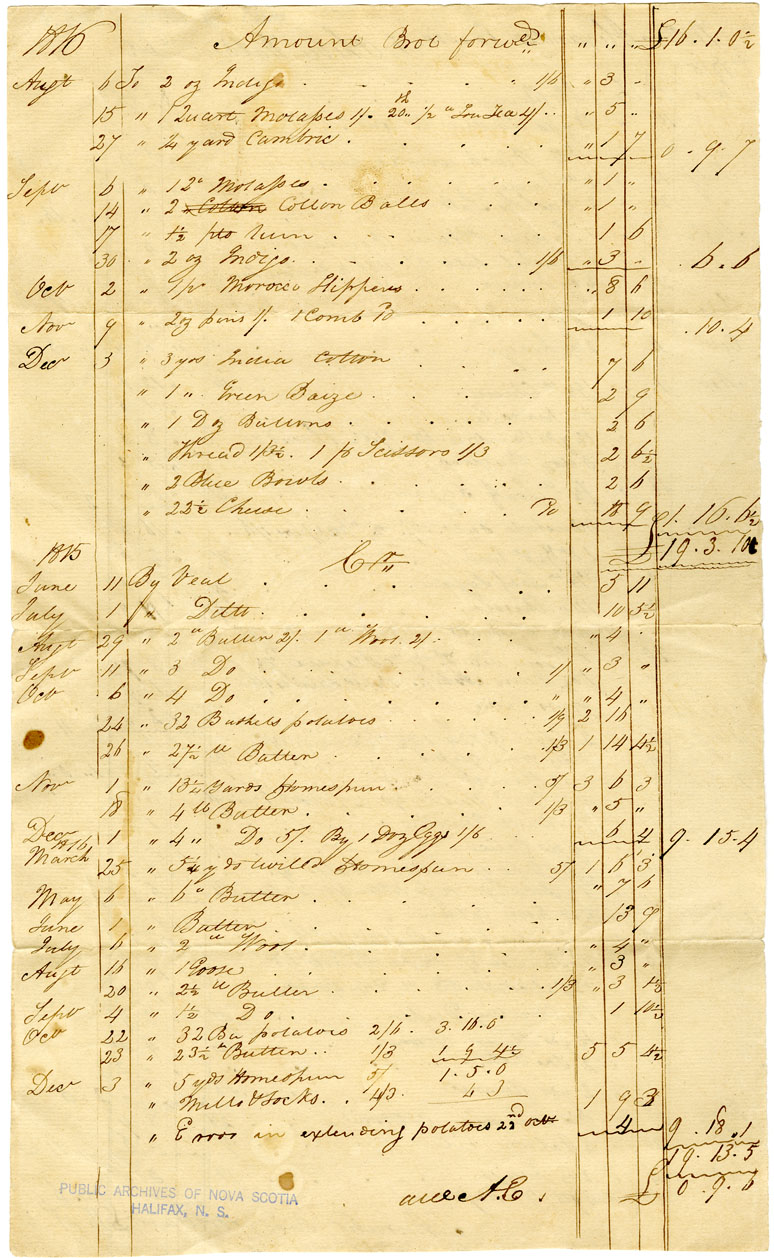 1816 Amount Brot forwd " " " £16 . 1 . 0½
Augt 6 To 2 oz Indigo 1/6 " 3 "
15 " 1 Quart Molasses 1/. 20th ½ " Tea 4/. " 5 "
27 " ¼ yard Cambric " 1 7 0 . 9 . 7
Sepr 6 " 1 Qt Molasses " 1 "
14 " 2 Cotton Balls " 1 "
17 " 1½ pts rum 1 6
30 " 2 oz Indigo 1/6 " 3 " 6 . 6
Oct 2 " 1 pr Morocco Slippers " 8 6
Nov 9 " 2 oz pins 1/. 1 Comb 1 10 .10.4
Dec 3 " 3 yds India Cotton 7 6
" 1 " Green Baize 2 9
" 1 Doz Buttons 2 6
" Thread 1/3½. 1 pr Scissors 1/3 2 6½
" 2 Blue Bowls 2 6
" 22½ Cheese 18 9 £1 . 16 . 6½
1815 Cr. £19 . 3 . 10
June 11 By Veal 5 11
July 1 " Ditto 10 5½
Augt 29 " 2 lb Butter 2/. 1 lb Wool 2/. " 4 .
Sepr 11 " 3 Do 1/ " 3 "
Oct 6 " 4 Do " " 4 "
24 " 32 Bushels potatoes 1/9 2 16
26 " 27½ lb Butter 1/3 1 14 4½
Nov 1 " 13¼ Yards Homespun 5/ 3 6 3
18 " 4 lb Butter 1/3 " 5 "
Decr 1 " 4 " Do 5/. By 1 Doz Eggs 1/6 6 4 9 . 15 . 4
1816
March 25 " 5¼ yds twilld Homespun 5/ 1 6 3
May 6 " 6 " Butter " 7 6
June 1 " Butter 13 9
July 6 " 2 lb Wool " 4 "
Augt 16 " 1 Goose " 3 "
20 " 2½ lb Butter 1/3 " 3 1½
Sepr 4 " 1½ Do 1 10½
Oct 22 " 32 Bu potatoes 2/6 3.16.0
23 " 23½ lb Butter 1/3 1 9 4½ 5 5 4½
Dec 3 " 5 yds Homespun 5/ 1.5.0
" Mitts & Socks 4/3 4 3 1 9 3
" Error in extending potatoes 22nd octr 4 9 . 18 . 1
19 . 13 . 5
A.C. £ 0 . 9 . 6
PUBLIC ARCHIVES OF NOVA SCOTIA
HALIFAX, N. S.